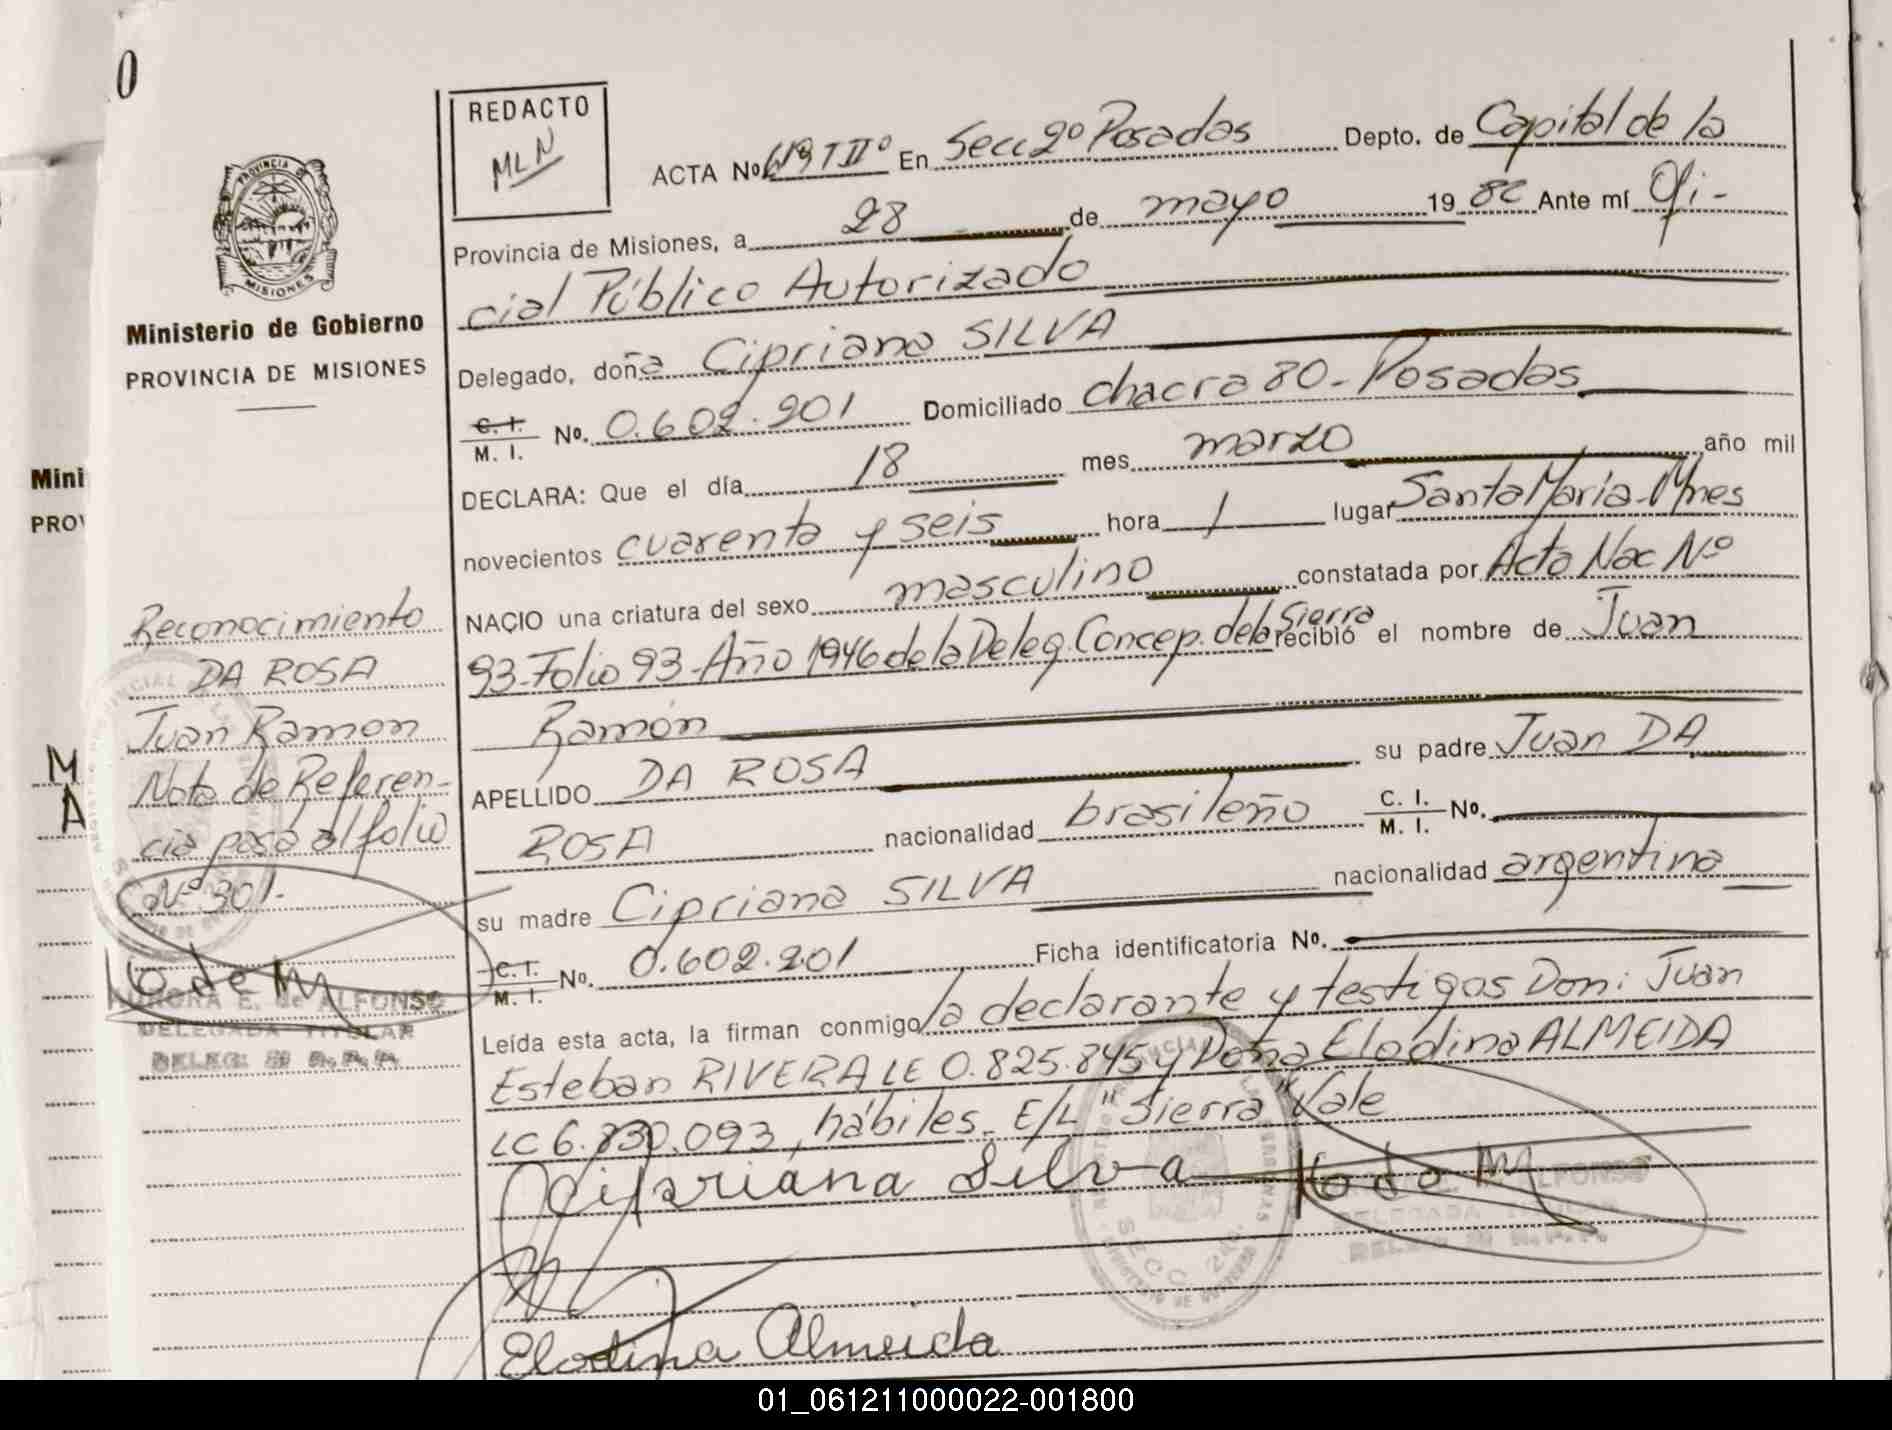 0
REDACTO
MLN
ACTA No. 419 T IIº En Secc 2º Posadas Depto. de Capital de la
Provincia de Misiones, a 28 de mayo 19 82 Ante mí Ofi-
cial Público Autorizado
Delegado, doña Cipriana SILVA
C. I.
M. I. No. 0.602.201 Domiciliado chacra 80 - Posadas
DECLARA: Que el día 18 mes marzo año mil
novecientos cuarenta y seis hora / lugar Santa María - Mnes
NACIO una criatura del sexo masculino constatada por Acta Nac Nº
93 - Folio 93 - Año 1946 de la Deleg. Concep. de la Sierra recibió el nombre de Juan
Ramón
APELLIDO DA ROSA su padre Juan DA
ROSA nacionalidad brasileño C. I.
M. I. No.
su madre Cipriana SILVA nacionalidad argentina
C. I.
M. I. No. 0.602.201 Ficha identificatoria No.
Leída esta acta, la firman conmigo la declarante y testigos Don: Juan
Esteban RIVERA LE 0.825.845 y Doña Elodina ALMEIDA
LC 6.830.093, hábiles. E/L "Sierra" Vale
Cipriana Silva
ALFONSO
DELEGADA TITULAR
Elodina Almeida
PROVINCIA
MISIONES
Ministerio de Gobierno
PROVINCIA DE MISIONES
Reconocimiento
DA ROSA
Juan Ramon
Nota de Referen-
cia pasa al folio
Nº 301.
AURORA E. de ALFONSO
DELEGADA TITULAR
Mini
PROV
M
A
01_061211000022-001800